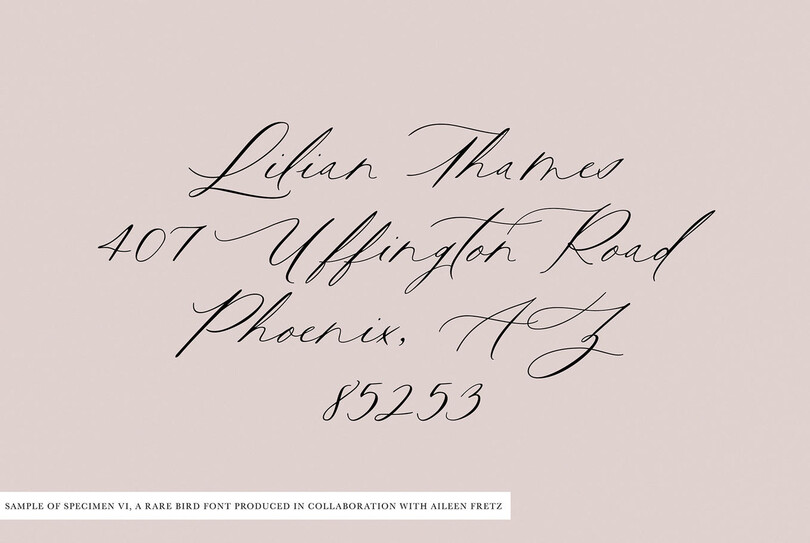 Lilian Thames
407 Uffington Road
Phoenix, AZ
85253
SAMPLE OF SPECIMEN VI, A RARE BIRD FONT PRODUCED IN COLLABORATION WITH AILEEN FRETZ